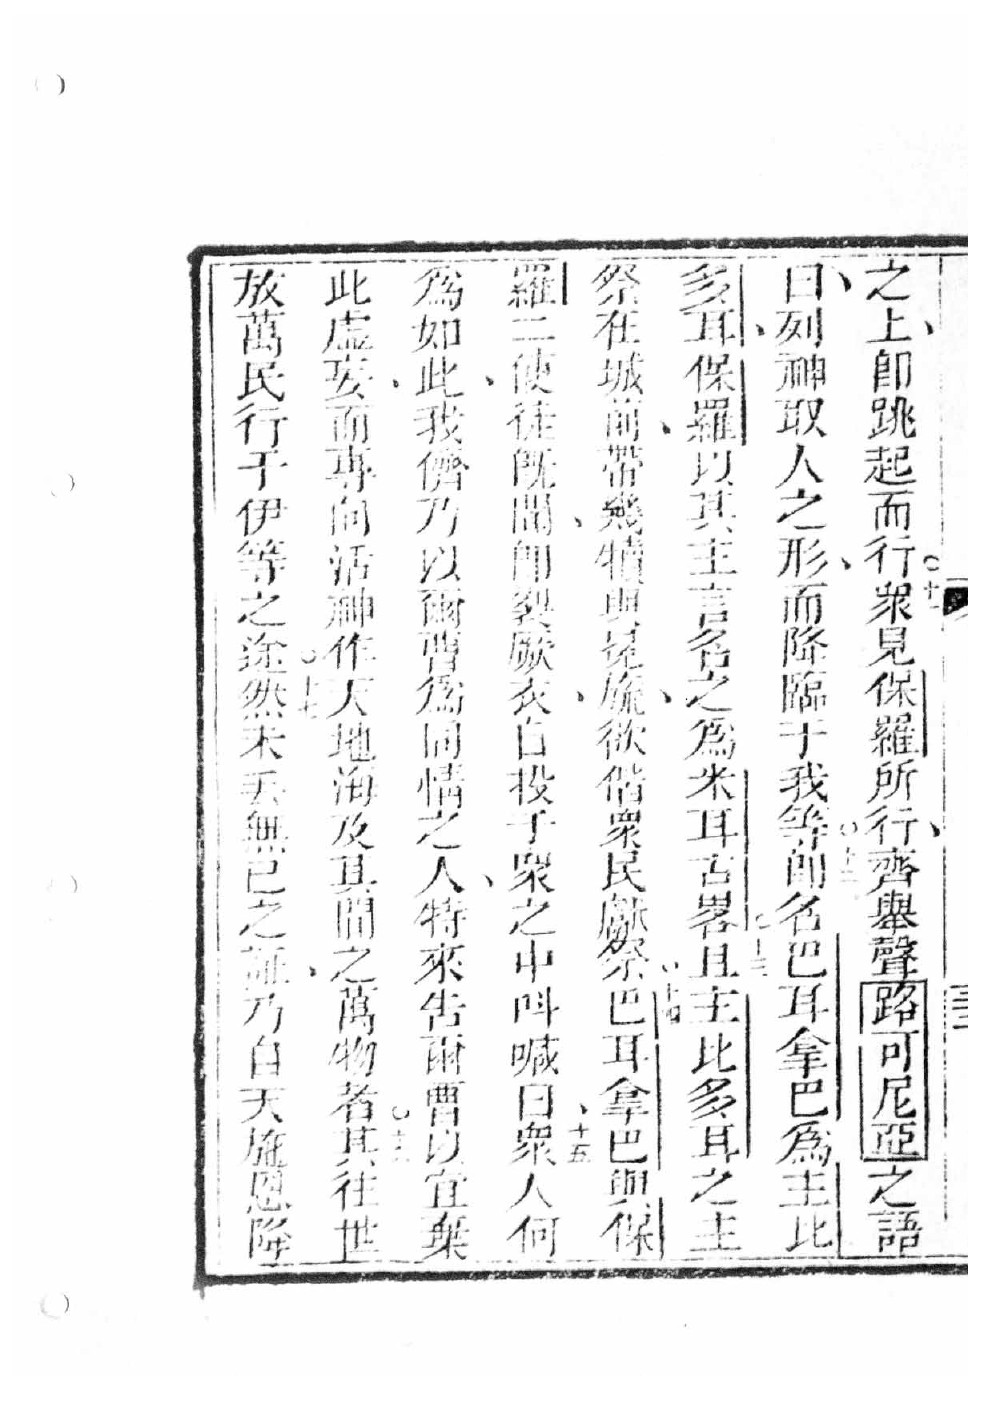 之上即跳起而行○十一衆見保羅所行齊舉聲路可尼亞之語
曰列神取人之形而降臨于我等○十二即名巴耳拿巴爲主比
多耳保羅以其主言名之爲米耳古畧○十三且主比多耳之主
祭在城前帶幾犢與冕旒欲偕衆民獻祭○十四巴耳拿巴與保
羅二使徒旣聞卽裂厥衣自投于衆之中呌喊曰○十五衆人何
爲如此我儕乃以爾曹爲同情之人特來告爾曹以宜棄
此虛妄而專向活神作天地海及其間之萬物者○十六其往世
放萬民行于伊等之途○十七然未丢無己之証乃自天施恩降